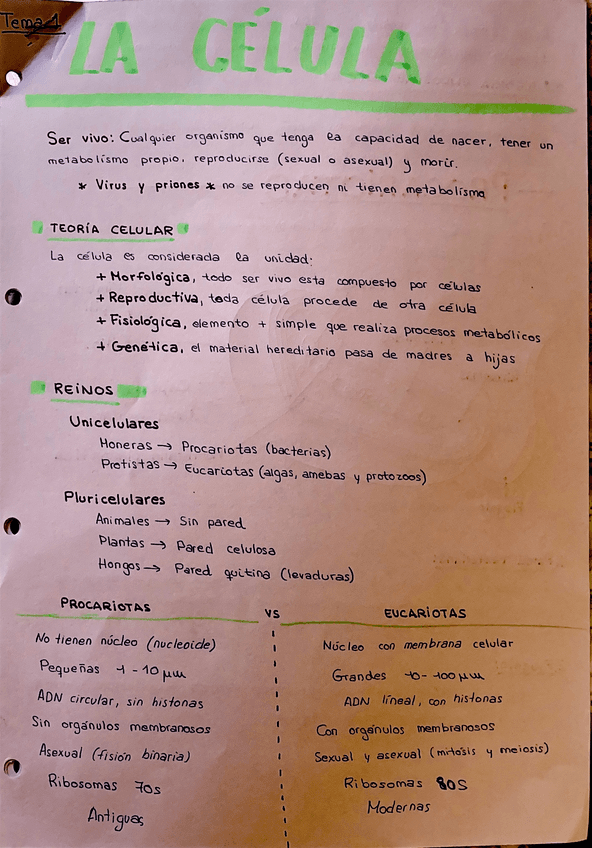 Tema 1
LA CÉLULA
Ser vivo: Cualquier organismo que tenga la capacidad de nacer, tener un
metabolismo propio, reproducirse (sexual o asexual) y morir.
* Virus y priones * no se reproducen ni tienen metabolismo
TEORÍA CELULAR
La célula es considerada la unidad:
+ Morfológica, todo ser vivo esta compuesto por células
+ Reproductiva, toda célula procede de otra célula
+ Fisiológica, elemento + simple que realiza procesos metabólicos
+ Genética, el material hereditario pasa de madres a hijas
REINOS
Unicelulares
Moneras → Procariotas (bacterias)
Protistas → Eucariotas (algas, amebas y protozoos)
Pluricelulares
Animales → Sin pared
Plantas → Pared celulosa
Hongos → Pared quitina (levaduras)
PROCARIOTAS VS EUCARIOTAS
No tienen núcleo (nucleoide) Núcleo con membrana celular
Pequeñas 1-10 μm Grandes 10-100 μm
ADN circular, sin histonas ADN líneal, con histonas
Sin orgánulos membranosos Con orgánulos membranosos
Asexual (fisión binaria) Sexual y asexual (mitosis y meiosis)
Ribosomas 70s Ribosomas 80S
Antiguas Modernas